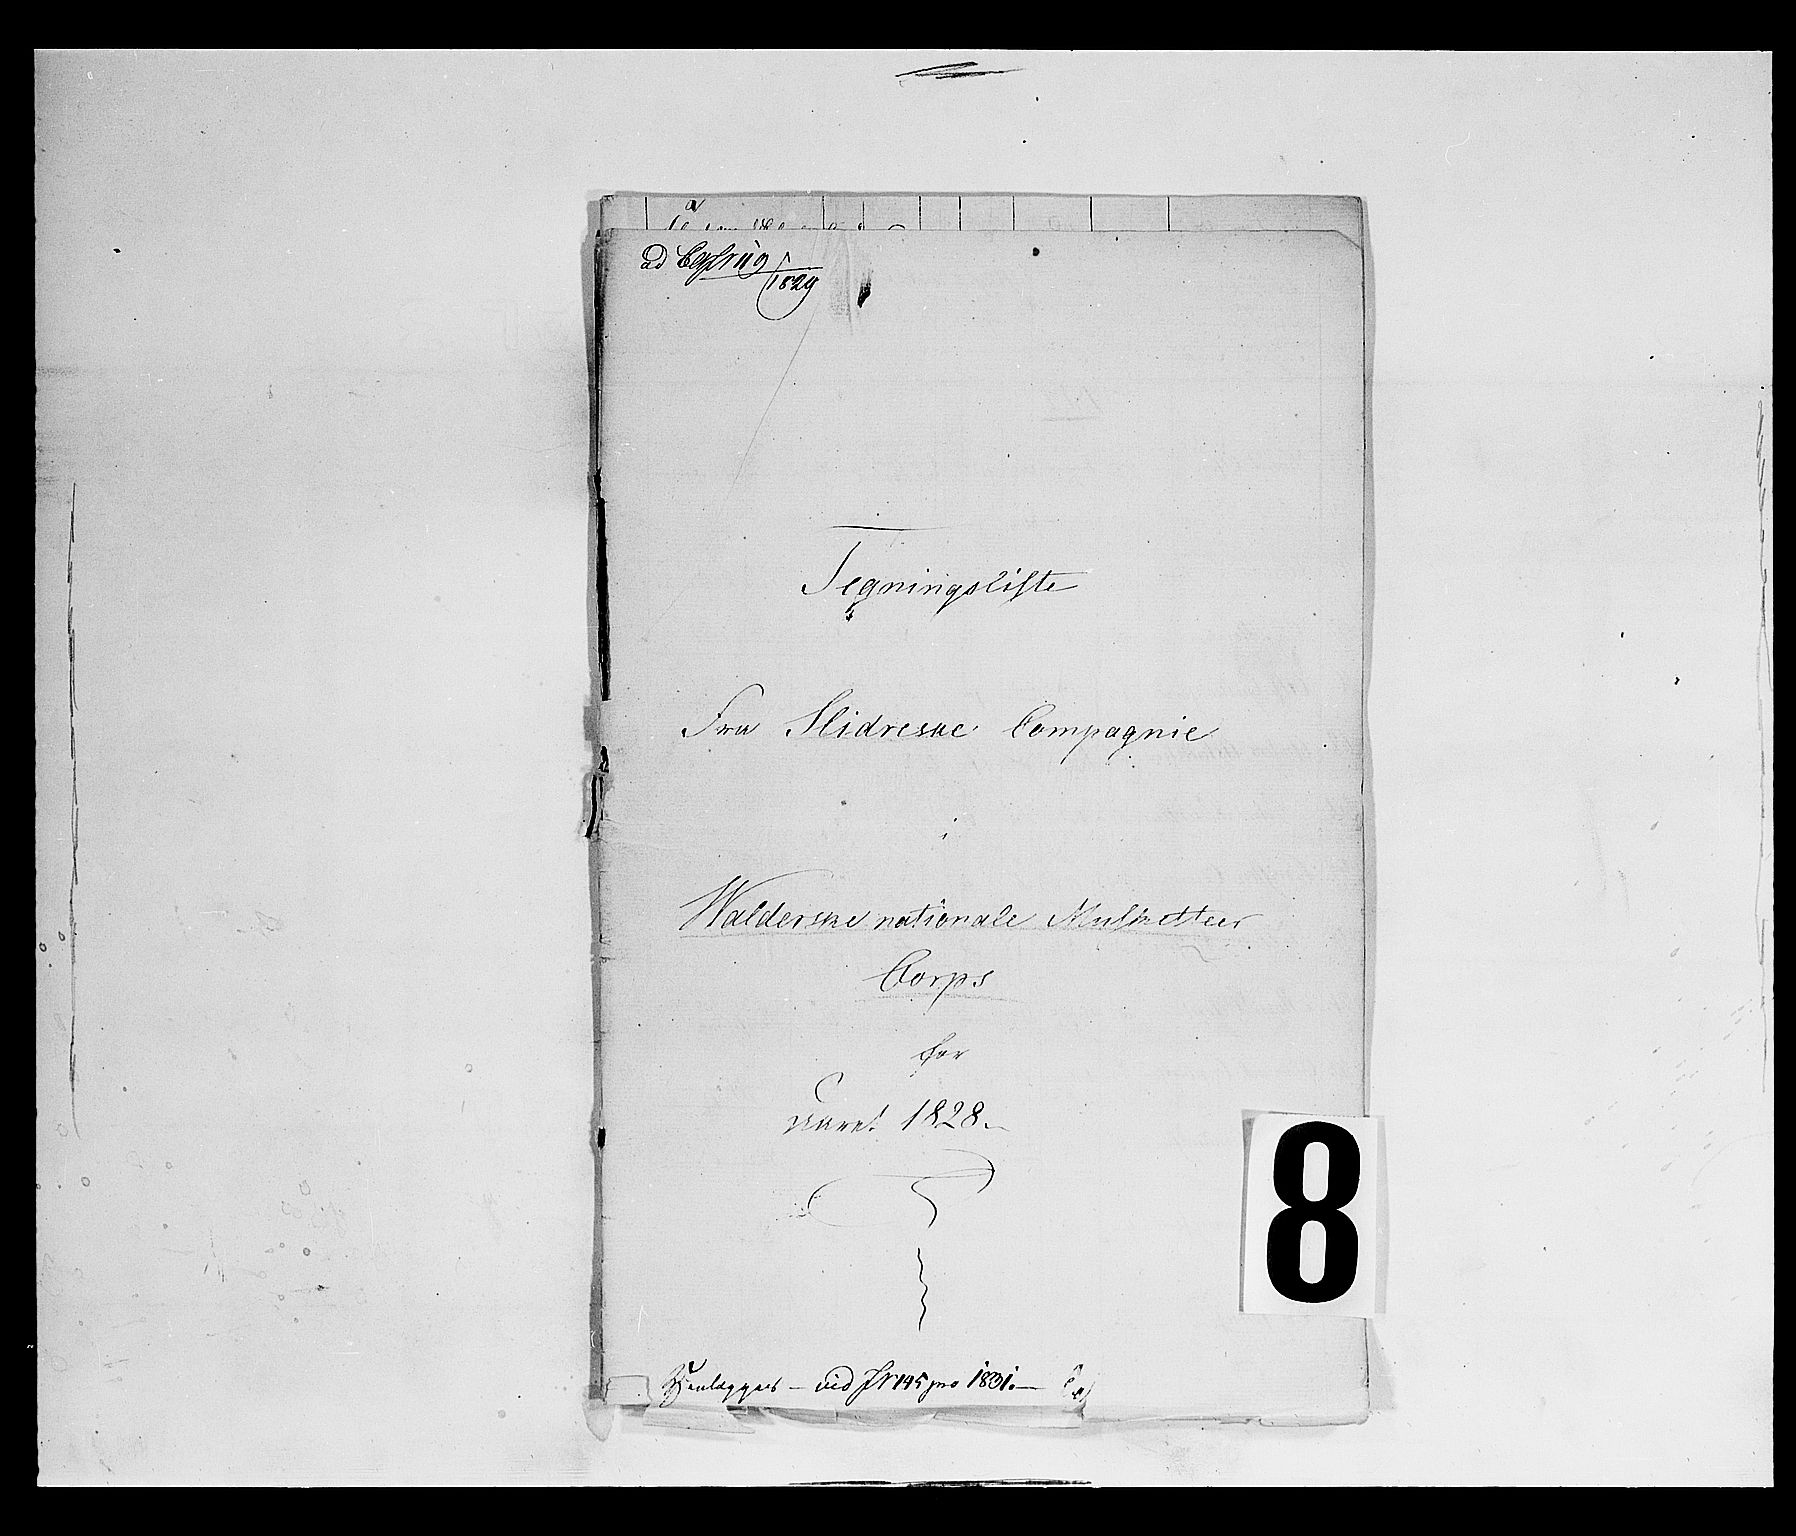 ad
1829
Tegningsliste
Fra Slidreske Compagnie
i
Walderske nationale Musketteer
Corps
for
Aaret 1828.
8
Henlægges - ved Jr 145 pro 1831.-